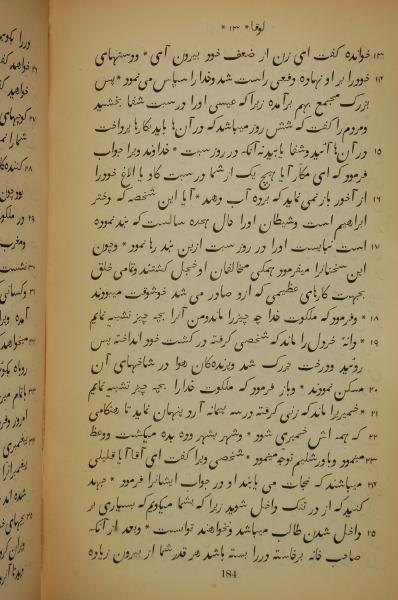 لوقا * ۱۳ *
۱۳ خوانده کفت ای زن از ضعف خود بیرون آی * و دستهای
خودرا بر او نهاده دفعی راست شد و خدا را سپاس می نمود * پس
بزرک مجمع بهم برآمده زیرا که عیسی اورا در سبت شفا بخشید
و مردم را کفت که شش روز میباشد که در آن‌ها باید بکارها پرداخت
۱۵ در آن‌ها آئید و شفا یابید نه آنکه در روز سبت * خداوند ویرا جواب
فرمود که ای مکار آیا هیچ یک از شما در سبت کاو یا الاغ خودرا
۱۶ از آخور باز نمی نماید که برده آب دهد * آیا این شخصه که دختر
ابراهیم است و شیطان اورا حال هجده سالست که بند نموده
۱۷ است نبایست اورا در روز سبت ازین بند رها نمود * و چون
این سخنانرا میفرمود همکی مخالفان او خجل کشتند و تمامی خلق
بجهت کارهای عظیمی که ازو صادر می شد خوشوقت میبودند
۱۸ * و فرمود که ملکوت خدا چه چیز را ماند و من آنرا بچه چیز تشبیه نمایم
۱۹ * دانهٔ خردل را ماند که شخصی کرفته در کشت خود انداخته پس
روئید و درخت بزرک شد و پرندکان هوا در شاخهای آن
۲۰ مسکن نمودند * و باز فرمود که ملکوت خدارا بچه چیز تشبیه نمایم
۲۱ * خمیر را ماند که زنی کرفته در سه پیمانه آرد پنهان نماید تا هنکامی
۲۲ که همه اش خمیری شود * و شهر بشهر و ده بده میکشت و وعظ
۲۳ مینمود و باورشلیم توجه مینمود * شخصی ویرا کفت ای آقا آیا قلیلی
۲۴ میباشند که نجات می یابند او در جواب ایشانرا فرمود * جهد
کنید که از در تنک داخل شوید زیرا که بشما میکویم که بسیاری بر
۲۵ داخل شدن طالب میباشند و نخواهند توانست * و بعد از آنکه
صاحب خانه برخاسته در را بسته باشد هر قدر شما از بیرون زیاده
184